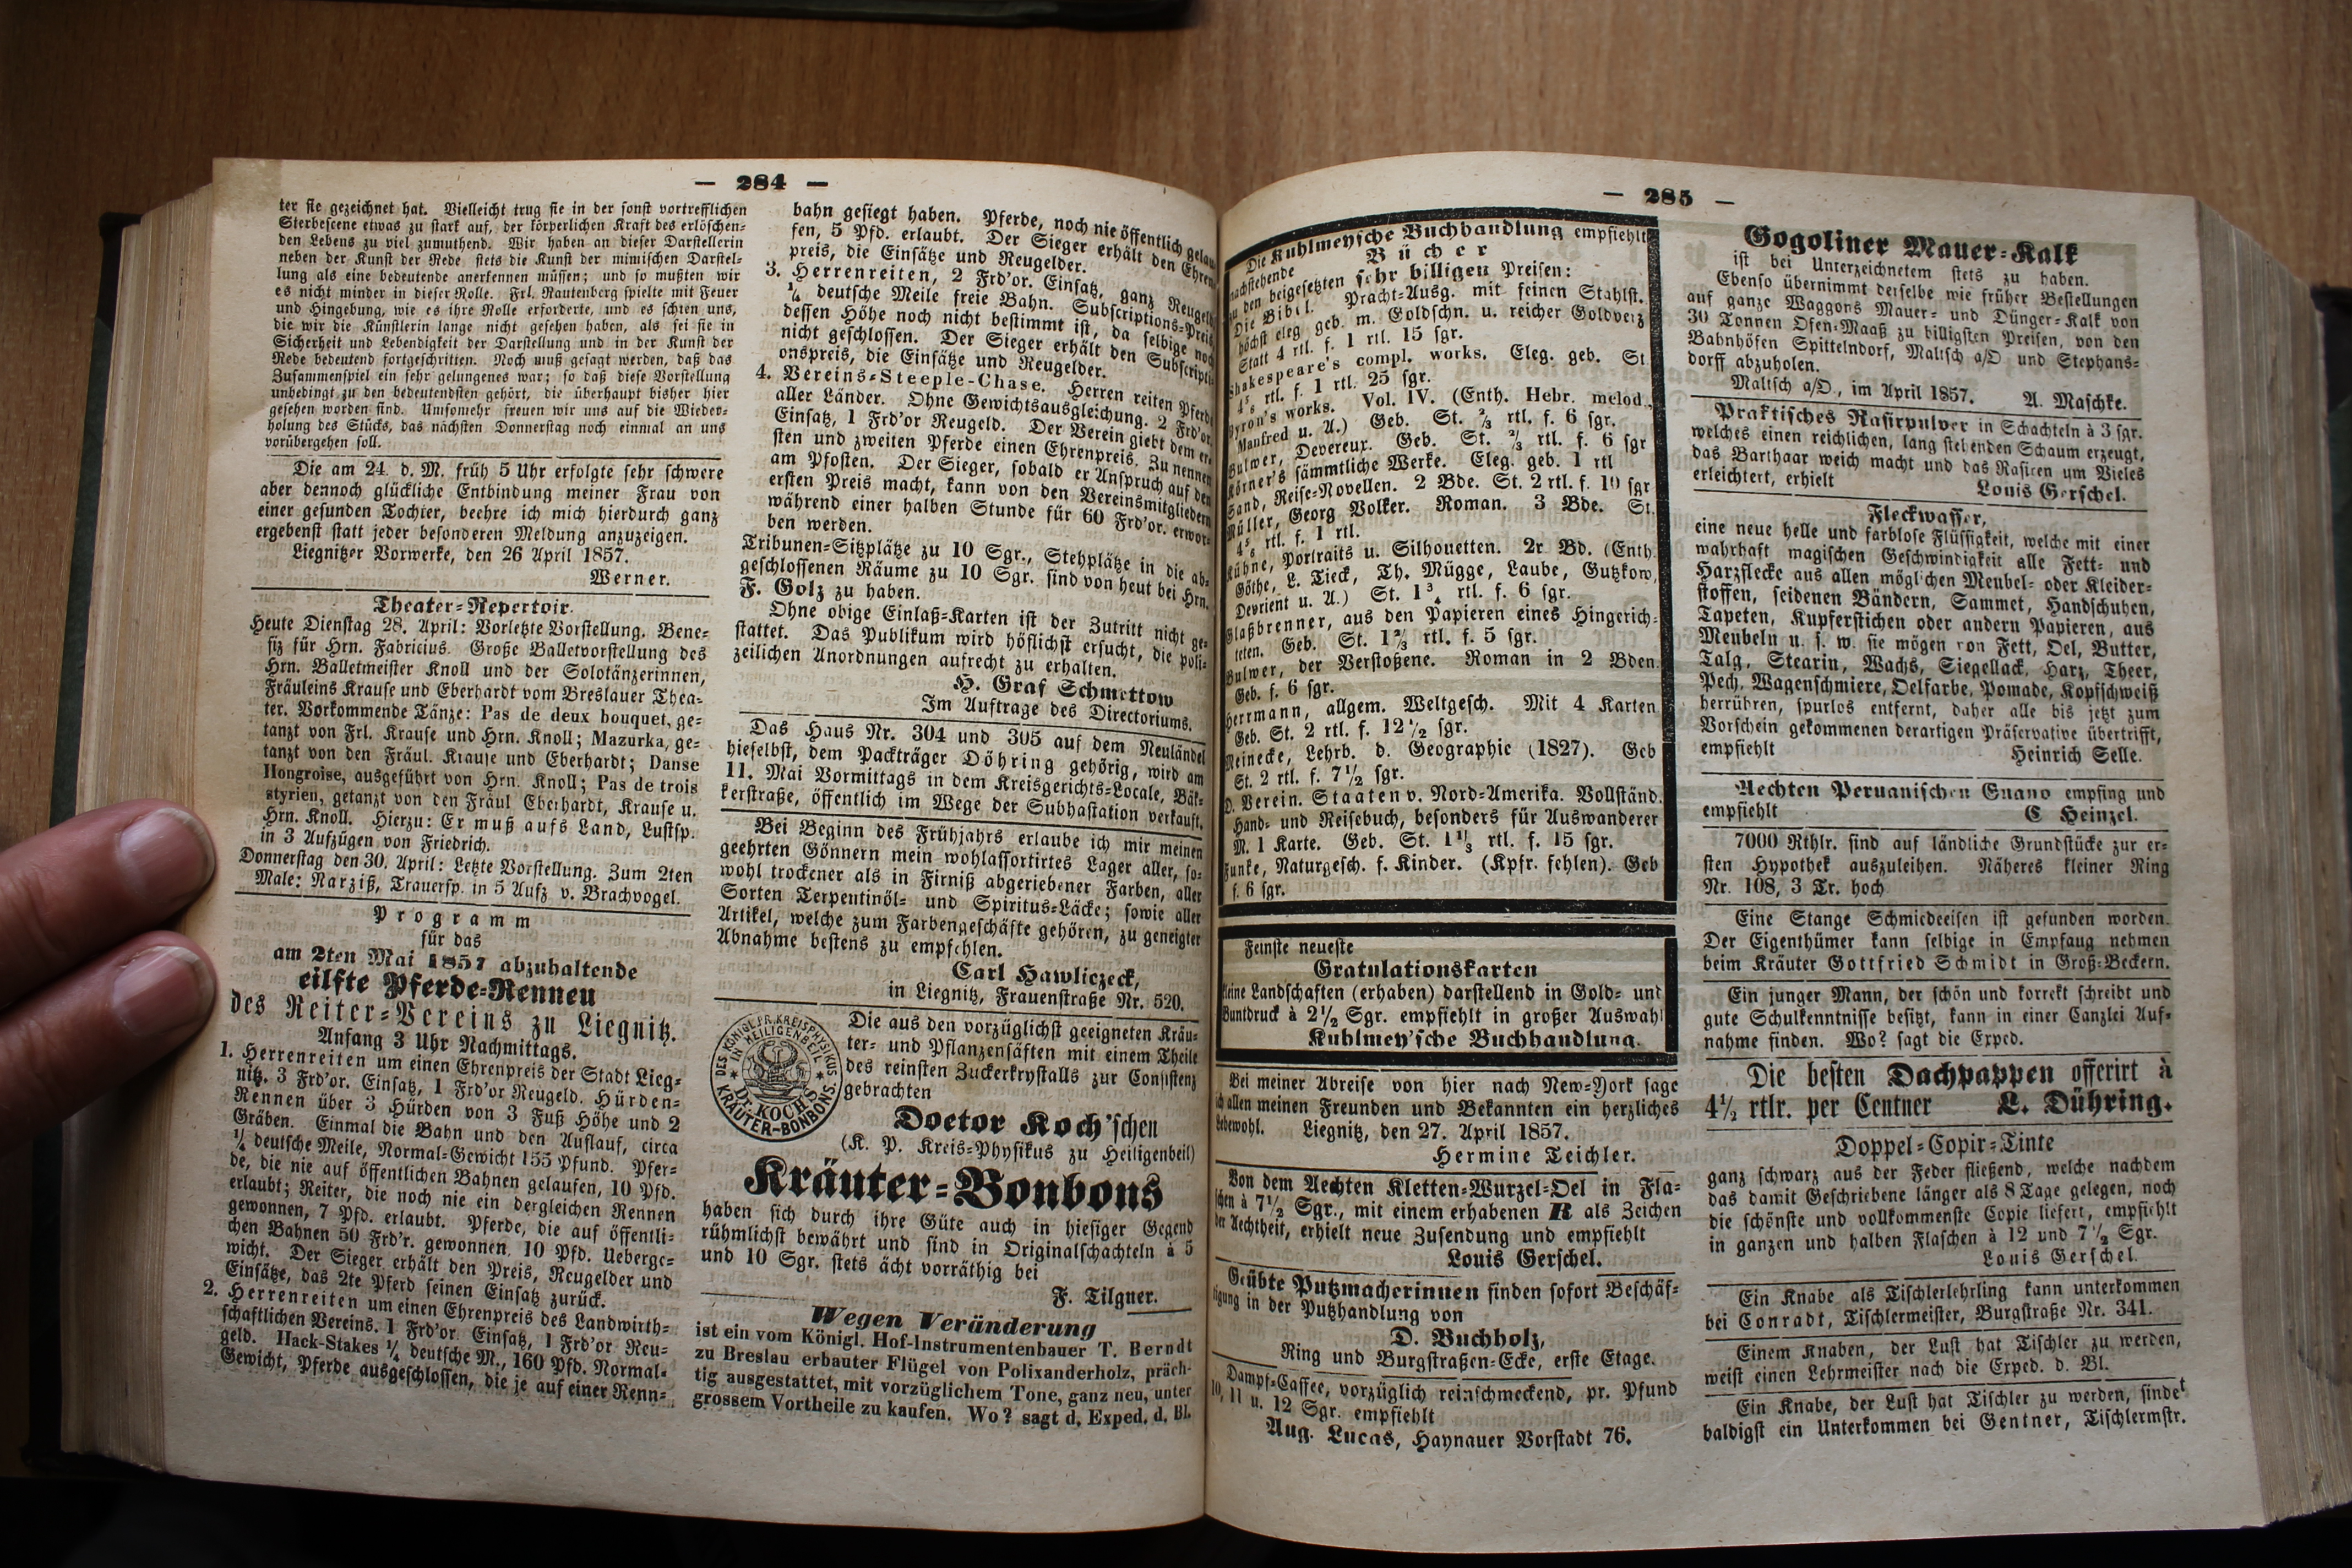 — 284 —
ter sie gezeichnet hat. Vielleicht trug sie in der sonst vortrefflichen
Sterbescene etwas zu stark auf, der körperlichen Kraft des erlöschen-
den Lebens zu viel zumuthend. Wir haben an dieser Darstellerin
neben der Kunst der Rede stets die Kunst der mimischen Darstel-
lung als eine bedeutende anerkennen müssen; und so mußten wir
es nicht minder in dieser Rolle. Frl. Rautenberg spielte mit Feuer
und Hingebung, wie es ihre Rolle erforderte, und es schien uns,
die wir die Künstlerin lange nicht gesehen haben, als sei sie in
Sicherheit und Lebendigkeit der Darstellung und in der Kunst der
Rede bedeutend fortgeschritten. Noch muß gesagt werden, daß das
Zusammenspiel ein sehr gelungenes war; so daß diese Vorstellung
unbedingt zu den bedeutendsten gehört, die überhaupt bisher hier
gesehen worden sind. Umsomehr freuen wir uns auf die Wieder-
holung des Stücks, das nächsten Donnerstag noch einmal an uns
vorübergehen soll.
Die am 24. d. M. früh 5 Uhr erfolgte sehr schwere
aber dennoch glückliche Entbindung meiner Frau von
einer gesunden Tochter, beehre ich mich hierdurch ganz
ergebenst statt jeder besonderen Meldung anzuzeigen.
Liegnitzer Vorwerke, den 26 April 1857.
Werner.
Theater-Repertoir.
Heute Dienstag 28. April: Vorletzte Vorstellung. Bene-
fiz für Hrn. Fabricius. Große Balletvorstellung des
Hrn. Balletmeister Knoll und der Solotänzerinnen,
Fräuleins Krause und Eberhardt vom Breslauer Thea-
ter. Vorkommende Tänze: Pas de deux bouquet, ge-
tanzt von Frl. Krause und Hrn. Knoll; Mazurka, ge-
tanzt von den Fräul. Krause und Eberhardt; Danse
Hongroise, ausgeführt von Hrn. Knoll; Pas de trois
styrien, getanzt von den Fräul Eberhardt, Krause u.
Hrn. Knoll. Hierzu: Er muß aufs Land, Lustsp.
in 3 Aufzügen von Friedrich.
Donnerstag den 30. April: Letzte Vorstellung. Zum 2ten
Male: Narziß, Trauersp. in 5 Aufz v. Brachvogel.
Programm
für das
am 2ten Mai 1857 abzuhaltende
eilfte Pferde-Rennen
des Reiter-Vereins zu Liegnitz.
Anfang 3 Uhr Nachmittags.
1. Herrenreiten um einen Ehrenpreis der Stadt Lieg-
nitz. 3 Frd'or. Einsatz, 1 Frd'or Reugeld. Hürden-
Rennen über 3 Hürden von 3 Fuß Höhe und 2
Gräben. Einmal die Bahn und den Auslauf, circa
¼ deutsche Meile, Normal-Gewicht 155 Pfund. Pfer-
de, die nie auf öffentlichen Bahnen gelaufen, 10 Pfd.
erlaubt; Reiter, die noch nie ein dergleichen Rennen
gewonnen, 7 Pfd. erlaubt. Pferde, die auf öffentli-
chen Bahnen 50 Frd'r. gewonnen, 10 Pfd. Ueberge-
wicht. Der Sieger erhält den Preis, Reugelder und
Einsätze, das 2te Pferd seinen Einsatz zurück.
2. Herrenreiten um einen Ehrenpreis des Landwirth-
schaftlichen Vereins. 1 Frd'or. Einsatz, 1 Frd'or Reu-
geld. Hack-Stakes ¼ deutsche M., 160 Pfd. Normal-
Gewicht, Pferde ausgeschlossen, die je auf einer Renn-
bahn gesiegt haben. Pferde, noch nie öffentlich gelau-
fen, 5 Pfd. erlaubt. Der Sieger erhält den Ehren-
preis, die Einsätze und Reugelder.
3. Herrenreiten, 2 Frd'or. Einsatz, ganz Reugeld,
¼ deutsche Meile freie Bahn. Subscriptions-Preis,
dessen Höhe noch nicht bestimmt ist, da selbige noch
nicht geschlossen. Der Sieger erhält den Subscripti-
onspreis, die Einsätze und Reugelder.
4. Vereins-Steeple-Chase. Herren reiten Pferde
aller Länder. Ohne Gewichtsausgleichung. 2 Frd'or.
Einsatz, 1 Frd'or Reugeld. Der Verein giebt dem er-
sten und zweiten Pferde einen Ehrenpreis. Zu nennen
am Pfosten. Der Sieger, sobald er Anspruch auf den
ersten Preis macht, kann von den Vereinsmitgliedern
während einer halben Stunde für 60 Frd'or. erwor-
ben werden.
Tribunen-Sitzplätze zu 10 Sgr., Stehplätze in die ab-
geschlossenen Räume zu 10 Sgr. sind von heut bei Hrn.
F. Golz zu haben.
Ohne obige Einlaß-Karten ist der Zutritt nicht ge-
stattet. Das Publikum wird höflichst ersucht, die poli-
zeilichen Anordnungen aufrecht zu erhalten.
H. Graf Schmettow
Im Auftrage des Directoriums.
Das Haus Nr. 304 und 305 auf dem Neuländel
hieselbst, dem Packträger Döhring gehörig, wird am
11. Mai Vormittags in dem Kreisgerichts-Locale, Bäk-
kerstraße, öffentlich im Wege der Subhastation verkauft.
Bei Beginn des Frühjahrs erlaube ich mir meinen
geehrten Gönnern mein wohlassortirtes Lager aller, so-
wohl trockener als in Firniß abgeriebener Farben, aller
Sorten Terpentinöl- und Spiritus-Läcke; sowie aller
Artikel, welche zum Farbengeschäfte gehören, zu geneigter
Abnahme bestens zu empfehlen.
Carl Hawliczeck,
in Liegnitz, Frauenstraße Nr. 520.
DES KÖNIGL. PR. KREISPHYSIKUS
IN HEILIGENBEIL
Dr. KOCH'S
KRÄUTER-BONBONS.
Die aus den vorzüglichst geeigneten Kräu-
ter- und Pflanzensäften mit einem Theile
des reinsten Zuckerkrystalls zur Consistenz
gebrachten
Doctor Koch'schen
(K. P. Kreis-Physikus zu Heiligenbeil)
Kräuter-Bonbons
haben sich durch ihre Güte auch in hiesiger Gegend
rühmlichst bewährt und sind in Originalschachteln à 5
und 10 Sgr. stets ächt vorräthig bei
F. Tilgner.
Wegen Veränderung
ist ein vom Königl. Hof-Instrumentenbauer T. Berndt
zu Breslau erbauter Flügel von Polixanderholz, präch-
tig ausgestattet, mit vorzüglichem Tone, ganz neu, unter
grossem Vortheile zu kaufen. Wo? sagt d. Exped. d. Bl.
— 285 —
Die Kuhlmeysche Buchhandlung empfiehlt
nachstehende Bücher
zu den beigesetzten sehr billigen Preisen:
Die Bibel. Pracht-Ausg. mit feinen Stahlst.
höchst eleg geb. m. Goldschn. u. reicher Goldverz
Statt 4 rtl. f. 1 rtl. 15 sgr.
Shakespeare's compl. works. Eleg. geb. St
rtl. f. 1 rtl. 25 sgr.
Byron's works. Vol. IV. (Enth. Hebr. melod.,
Manfred u. A.) Geb. St. ⅔ rtl. f. 6 sgr.
Bulwer, Devereux. Geb. St. ⅔ rtl. f. 6 sgr
Körner's sämmtliche Werke. Eleg. geb. 1 rtl
Sand, Reise-Novellen. 2 Bde. St. 2 rtl. f. 10 sgr
Müller, Georg Volker. Roman. 3 Bde. St.
rtl. f. 1 rtl.
Kühne, Portraits u. Silhouetten. 2r Bd. (Enth.
Göthe, L. Tieck, Th. Mügge, Laube, Gutzkow,
Devrient u. A.) St. rtl. f. 6 sgr.
Glaßbrenner, aus den Papieren eines Hingerich-
teten. Geb. St. 1⅔ rtl. f. 5 sgr.
Bulwer, der Verstoßene. Roman in 2 Bden.
Geb. f. 6 sgr.
Herrmann, allgem. Weltgesch. Mit 4 Karten
Geb. St. 2 rtl. f. 12½ sgr.
Meinecke, Lehrb. d. Geographie (1827). Geb
St. 2 rtl. f. 7½ sgr.
D. Verein. Staaten v. Nord-Amerika. Vollständ.
Hand- und Reisebuch, besonders für Auswanderer
M. 1 Karte. Geb. St. 1⅓ rtl. f. 15 sgr.
Funke, Naturgesch. f. Kinder. (Kpfr. fehlen). Geb
f. 6 sgr.
Feinste neueste
Gratulationskarten
kleine Landschaften (erhaben) darstellend in Gold- und
Buntdruck à 2½ Sgr. empfiehlt in großer Auswahl
Kuhlmey'sche Buchhandlung.
Bei meiner Abreise von hier nach New-York sage
ich allen meinen Freunden und Bekannten ein herzliches
Lebewohl. Liegnitz, den 27. April 1857.
Hermine Teichler.
Von dem Aechten Kletten-Wurzel-Oel in Fla-
schen à 7½ Sgr., mit einem erhabenen R als Zeichen
der Aechtheit, erhielt neue Zusendung und empfiehlt
Louis Gerschel.
Geübte Putzmacherinnen finden sofort Beschäf-
tigung in der Putzhandlung von
D. Buchholz,
Ring und Burgstraßen-Ecke, erste Etage.
Dampf-Caffee, vorzüglich reinschmeckend, pr. Pfund
10, 11 u. 12 Sgr. empfiehlt
Aug. Lucas, Haynauer Vorstadt 76.
Gogoliner Mauer-Kalk
ist bei Unterzeichnetem stets zu haben.
Ebenso übernimmt derselbe wie früher Bestellungen
auf ganze Waggons Mauer- und Dünger-Kalk von
30 Tonnen Ofen-Maaß zu billigsten Preisen, von den
Bahnhöfen Spittelndorf, Maltsch a/O und Stephans-
dorff abzuholen.
Maltsch a/O., im April 1857. A. Maschke.
Praktisches Rasirpulver in Schachteln à 3 sgr.
welches einen reichlichen, lang stehenden Schaum erzeugt,
das Barthaar weich macht und das Rasiren um Vieles
erleichtert, erhielt Louis Gerschel.
Fleckwasser,
eine neue helle und farblose Flüssigkeit, welche mit einer
wahrhaft magischen Geschwindigkeit alle Fett- und
Harzflecke aus allen möglichen Meubel- oder Kleider-
stoffen, seidenen Bändern, Sammet, Handschuhen,
Tapeten, Kupferstichen oder andern Papieren, aus
Meubeln u. s. w. sie mögen von Fett, Oel, Butter,
Talg, Stearin, Wachs, Siegellack, Harz, Theer,
Pech, Wagenschmiere, Oelfarbe, Pomade, Kopfschweiß
herrühren, spurlos entfernt, daher alle bis jetzt zum
Vorschein gekommenen derartigen Präservative übertrifft,
empfiehlt Heinrich Selle.
Aechten Peruanischen Guano empfing und
empfiehlt C Heinzel.
7000 Rthlr. sind auf ländliche Grundstücke zur er-
sten Hypothek auszuleihen. Näheres kleiner Ring
Nr. 108, 3 Tr. hoch
Eine Stange Schmiedeeisen ist gefunden worden.
Der Eigenthümer kann selbige in Empfang nehmen
beim Kräuter Gottfried Schmidt in Groß-Beckern.
Ein junger Mann, der schön und korrekt schreibt und
gute Schulkenntnisse besitzt, kann in einer Canzlei Auf-
nahme finden. Wo? sagt die Exped.
Die besten Dachpappen offerirt à
4½ rtlr. per Centner L. Dühring.
Doppel-Copir-Tinte
ganz schwarz aus der Feder fließend, welche nachdem
das damit Geschriebene länger als 8 Tage gelegen, noch
die schönste und vollkommenste Copie liefert, empfiehlt
in ganzen und halben Flaschen à 12 und 7½ Sgr.
Louis Gerschel.
Ein Knabe als Tischlerlehrling kann unterkommen
bei Conradt, Tischlermeister, Burgstraße Nr. 341.
Einem Knaben, der Lust hat Tischler zu werden,
weist einen Lehrmeister nach die Exped. d. Bl.
Ein Knabe, der Lust hat Tischler zu werden, findet
baldigst ein Unterkommen bei Gentner, Tischlermstr.